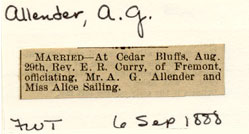 Allender, A. G.
MARRIED—At Cedar Bluffs, Aug.
29th, Rev. E. R. Curry, of Fremont,
officiating, Mr. A. G. Allender and
Miss Alice Salling.
FWT 6 Sep 1888